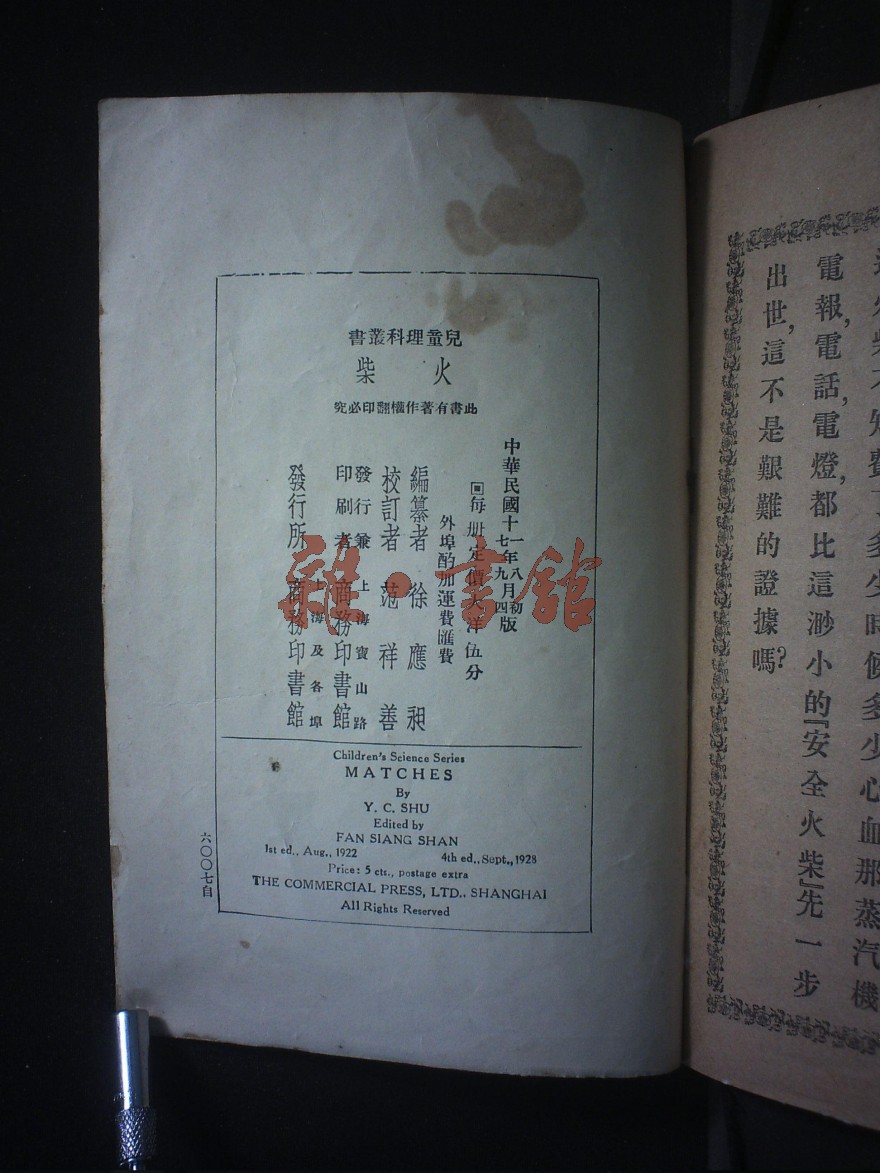 兒童理科叢書
火柴
此書有著作權翻印必究
中華民國十一年八月初版
十七年九月四版
每册定價大洋伍分
外埠酌加運費匯費
編纂者 徐應昶
校訂者 范祥善
發行兼印刷者 上海寶山路 商務印書館
發行所 上海及各埠 商務印書館
Children's Science Series
MATCHES
By
Y. C. SHU
Edited by
FAN SIANG SHAN
1st ed., Aug., 1922 4th ed., Sept., 1928
Price: 5 cts., postage extra
THE COMMERCIAL PRESS, LTD., SHANGHAI
All Rights Reserved
六〇〇七自
雜·書館
火柴不知費了多少時候多少心血那蒸汽機
電報,電話,電燈,都比這渺小的『安全火柴』先一步
出世,這不是艱難的證據嗎?